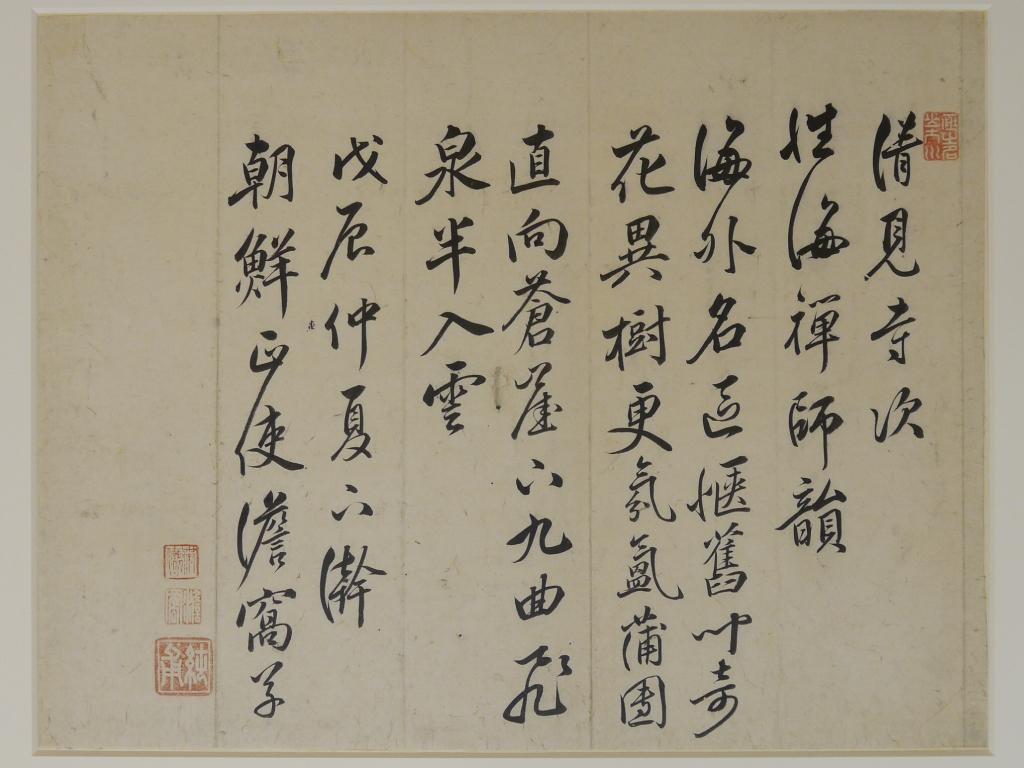 清見寺次
性海禪師韻
海外名區愜舊聞奇
花異樹更氛氳蒲團
直向蒼崖下九曲飛
泉半入雲
戊辰仲夏下澣
朝鮮正使澹窩草